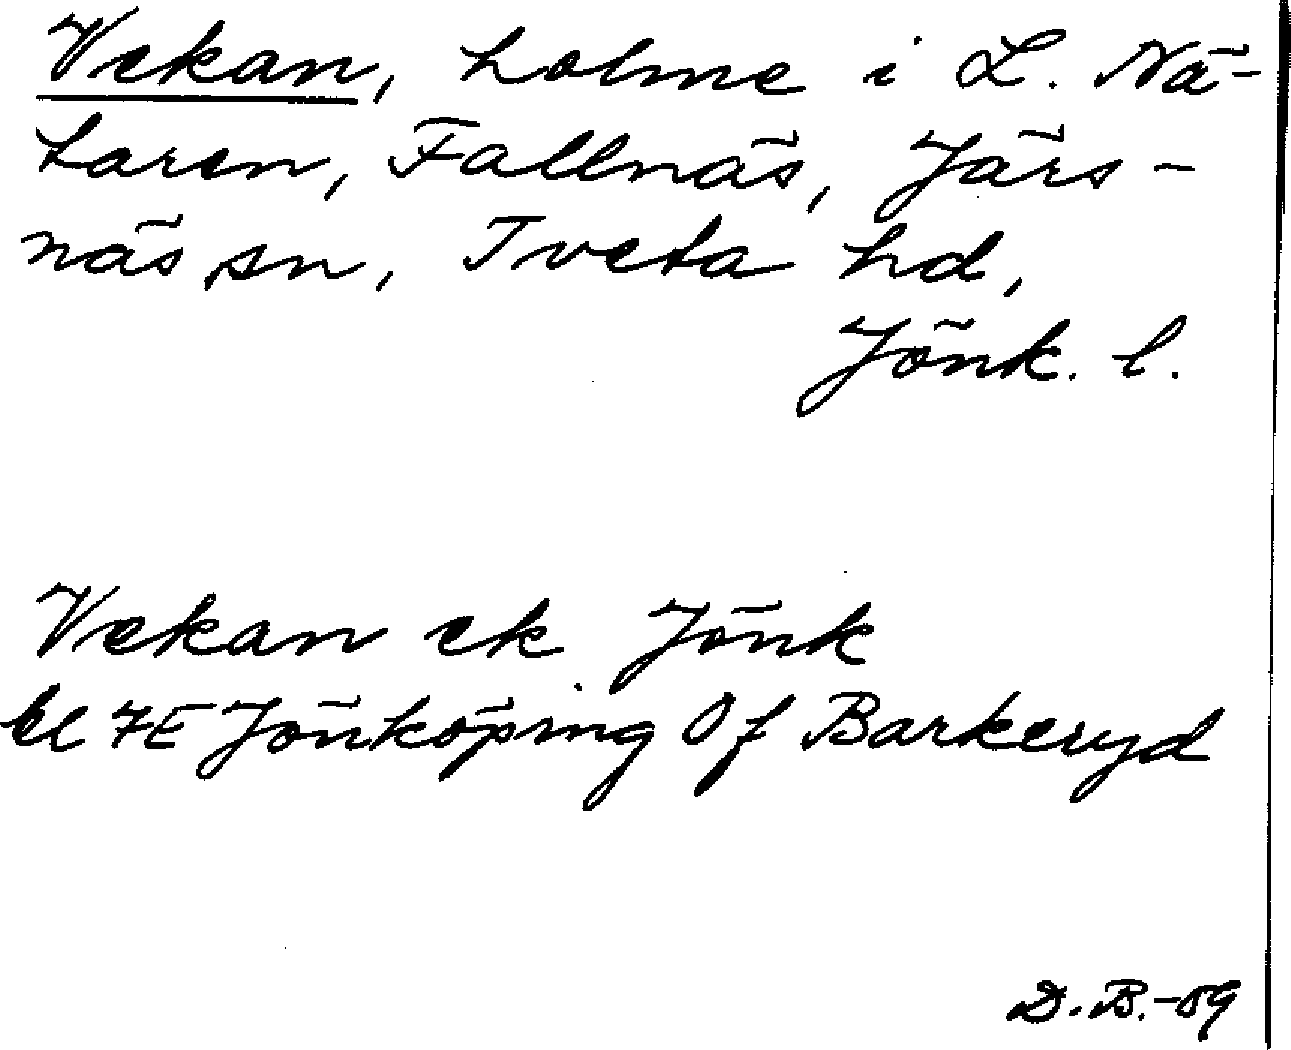 Vekan, holme i L. Nä-
taren, Fallnäs, Järs-
näs sn, Tveta hd,
Jönk. l.
Vekan ek Jönk
bl 7E Jönköping Of Barkeryd
D. B. -59